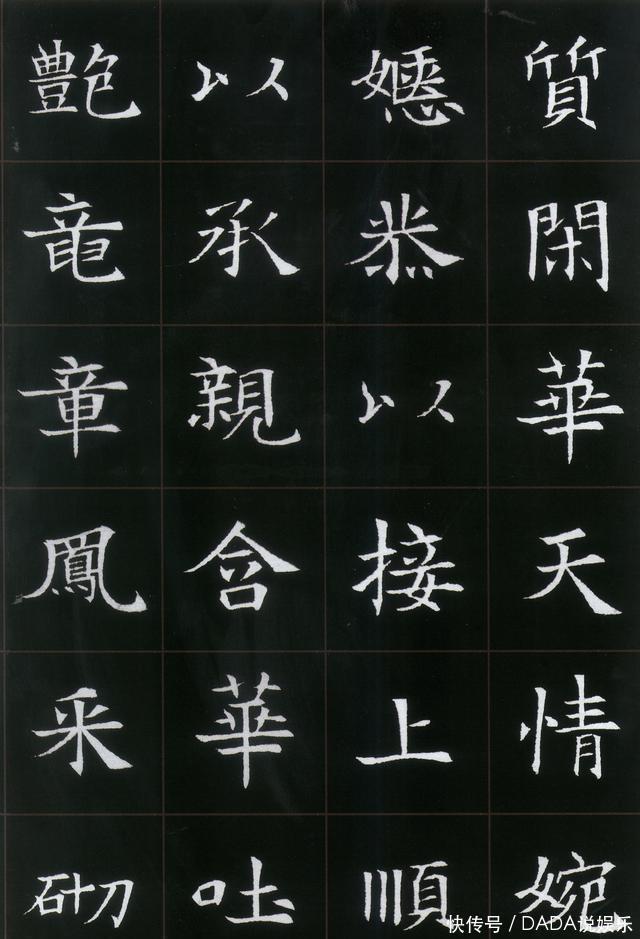 質閑華天情婉
嫕恭以接上順
以承親含華吐
艶竜章鳳采砌
快传号 / DADA说娱乐